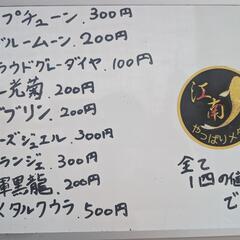 プチューン.300円
ブルームーン.200円
ラウドグレーダイヤ.100円
光菊.200円
ブリン.200円
ーズジュエル.300円
ランジェ.300円
輝黒龍.200円
メタルクウラ.500円
江南
やっぱりメ
全て
1匹の値
で